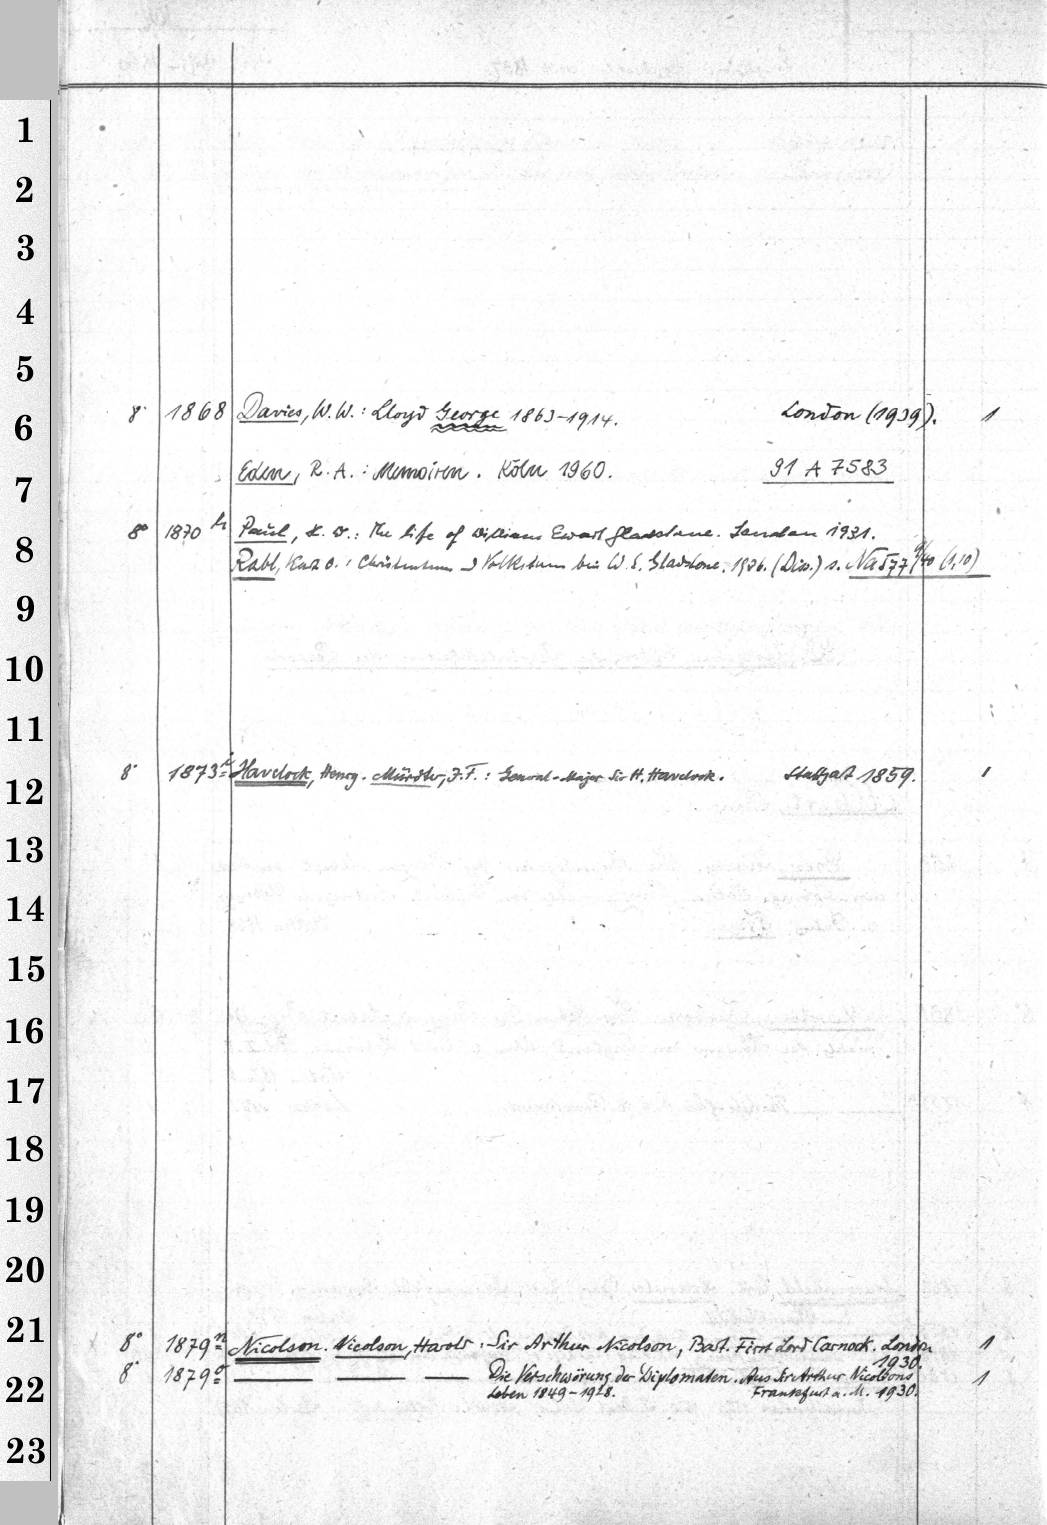 1
2
3
4
5
6
7
8
9
10
11
12
13
14
15
16
17
18
19
20
21
22
23
8° 1868 Davies, W. W. : Lloyd George 1863-1914. London (1939). 1
Eden, R. A. : Memoiren. Köln 1960. 91 A 7583
8° 1870 h Paul, H. W.: The life of William Ewart Gladstone. London 1931.
Rabl, Kurt O. : Christentum u Volkstum bei W. E. Gladstone. 1936. (Diss.) s. Na 577 /40 (1,10)
8° 1873 i Havelock, Henry. Mürdter, J. F. : General-Major Sir H. Havelock. Stuttgart 1859. 1
8° 1879 n Nicolson. Nicolson, Harold : Sir Arthur Nicolson, Bart. First Lord Carnock. London 1
1930.
8° 1879 o — — — Die Verschwörung der Diplomaten. Aus Sir Arthur Nicolsons 1
Leben 1849-1928. Frankfurt a. M. 1930.